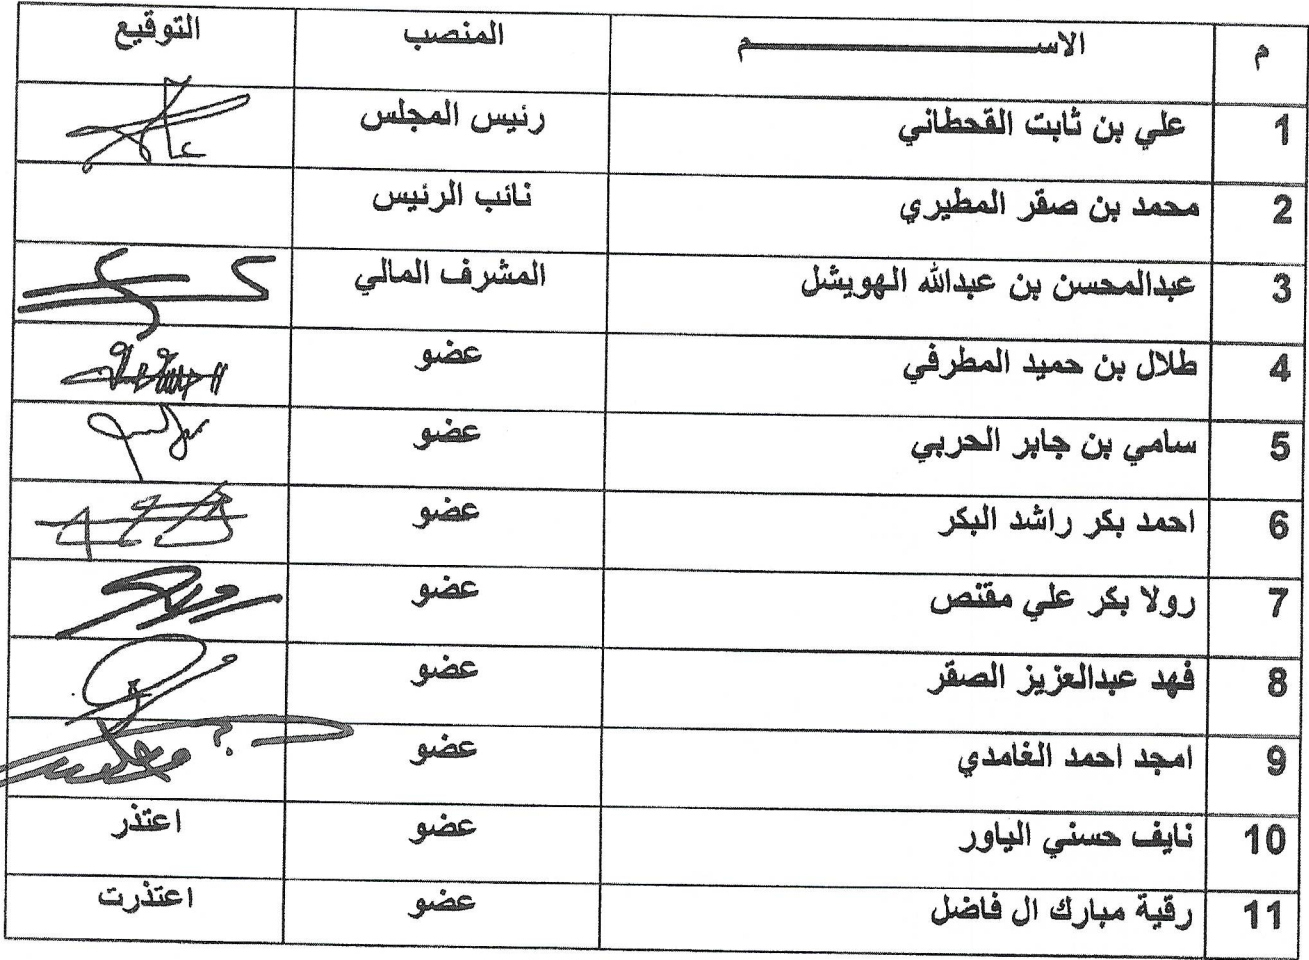 م الاســـــــــــــــــــــــم المنصب التوقيع
1 علي بن ثابت القحطاني رئيس المجلس
2 محمد بن صقر المطيري نائب الرئيس
3 عبدالمحسن بن عبدالله الهويشل المشرف المالي
4 طلال بن حميد المطرفي عضو
5 سامي بن جابر الحربي عضو
6 احمد بكر راشد البكر عضو
7 رولا بكر علي مقنص عضو
8 فهد عبدالعزيز الصقر عضو
9 امجد احمد الغامدي عضو
10 نايف حسني الياور عضو اعتذر
11 رقية مبارك ال فاضل عضو اعتذرت